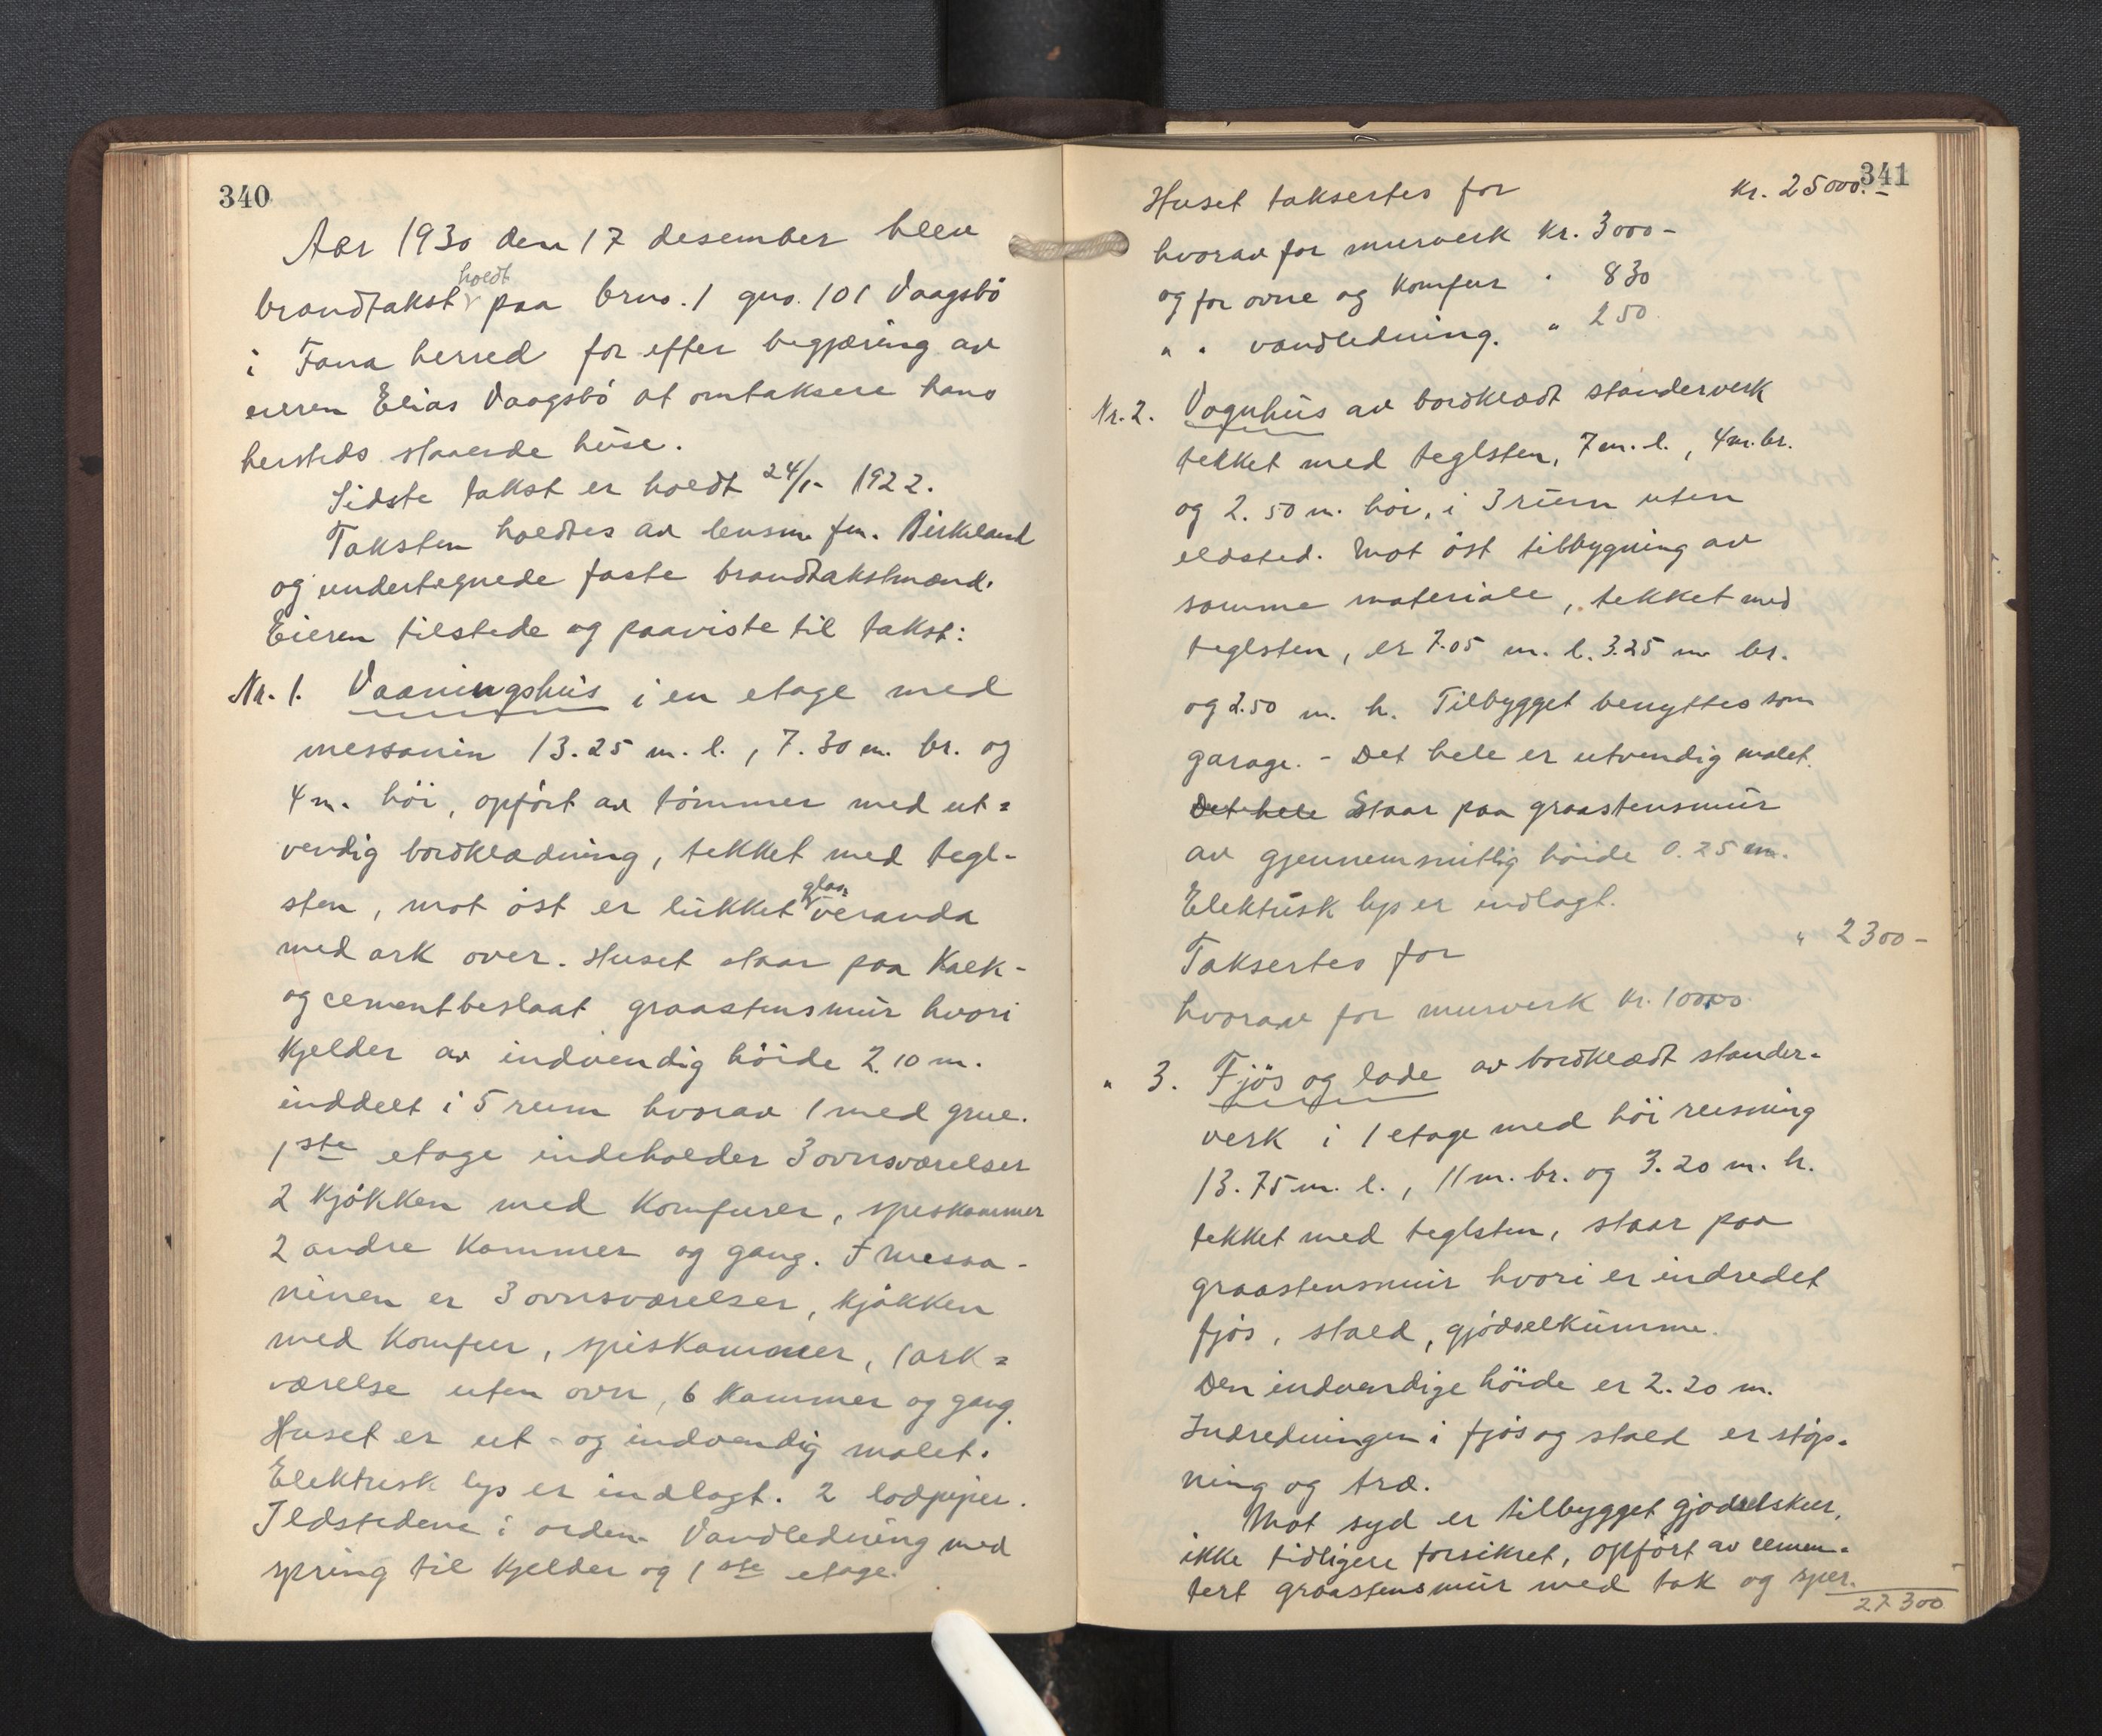 340
Aar 1930 den 17 desember blev
holdt
brandtakst paa brno. 1 gno. 101 Vaagsbö
i Fana herred for efter begjæring av
eieren Elias Vaagsbö at omtaksere hans
hersteds staaende huse.
Sidste takst er holdt 24/1- 1922.
Taksten holdtes av lensm. fm. Birkeland
og undertegnede faste brandtakstmænd.
Eieren tilstede og paaviste til takst:
Nr. 1. Vaaningshus i en etage med
messanin 13.25 m. l., 7.30 m. br. og
4 m. höi, opfört av tömmer med ut=
vendig bordklædning, tekket med tegl-
sten, mot öst er lukket glas veranda
med ark over. Huset staar paa kalk-
og cementbeslaat graastensmur hvori
kjelder av indvendig höide 2.10 m.
inddelt i 5 rum hvorav 1 med grue.
1ste etage indeholder 3 ovnsværelser
2 kjökken med komfurer, speskammer
2 andre kammer og gang. I messa-
ninen er 3 ovnsværelser, kjökken
med komfur, spiskammer, 1 ark=
værelse uten ovn, 6 kammer og gang.
Huset er ut- og indvendig malet.
Elektrisk lys er indlagt. 2 lodpiper.
Ildstedene i orden. Vandledning med
spring til kjelder og 1ste etage.
341
Huset taksertes for kr. 25000.-
hvorav for murverk kr. 3000-
og for ovne og komfur " 830
" " vandledning. " 250
Nr. 2. Vognhus av bordklædt standerverk
tekket med teglsten, 7 m. l., 4 m. br.
og 2.50 m. höi, i 3 rum uten
ildsted. Mot öst tilbygning av
samme materiale, tekket med
teglsten, er 7.05 m. l. 3.25 m br.
og 2.50 m. h. Tilbygget benyttes som
garage. - Det hele er utvendig malet.
Det hele Staar paa graastensmur
av gjennemsnitlig höide 0.25 m.
Elektrisk lys er indlagt.
Taksertes for " 2300-
hvorav for murverk kr.
" 3. Fjös og lade av bordklædt stander-
verk i 1 etage med höi reisning
13.75 m. l., 11 m. br. og 3.20 m. h.
tekket med teglsten, staar paa
graastensmur hvori er indredet
fjös, stald, gjödselkumme.
Den indvendige höide er 2.20 m.
Indredningen i fjös og stald er stöp-
ning og træ.
Mot syd er tilbygget gjødselskur,
ikke tidligere forsikret, opfört av cemen-
tert graastensmur med tak og sper.
27300